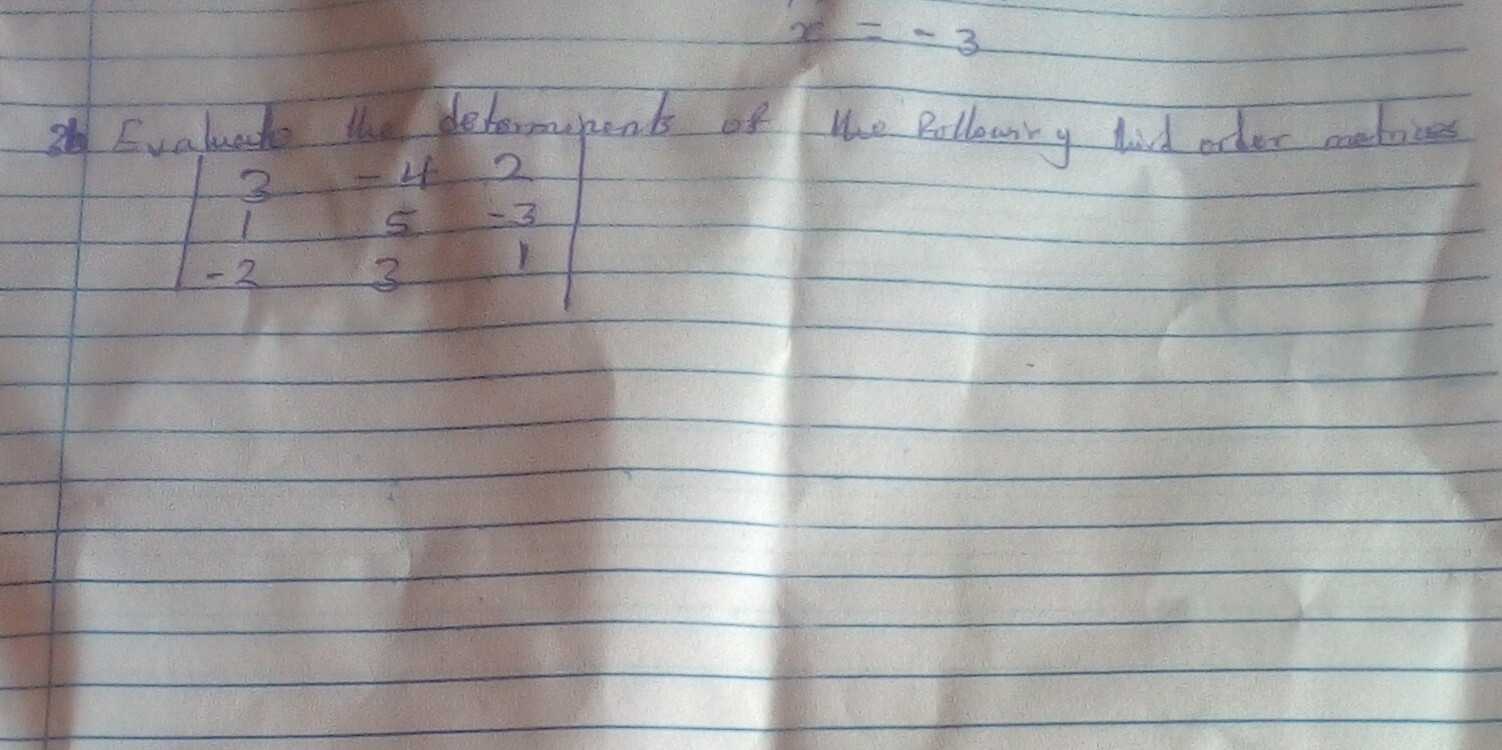 x = - 3
3b Evaluate the determinents of the following third order matrices
3 -4 2
1 5 -3
-2 3 1